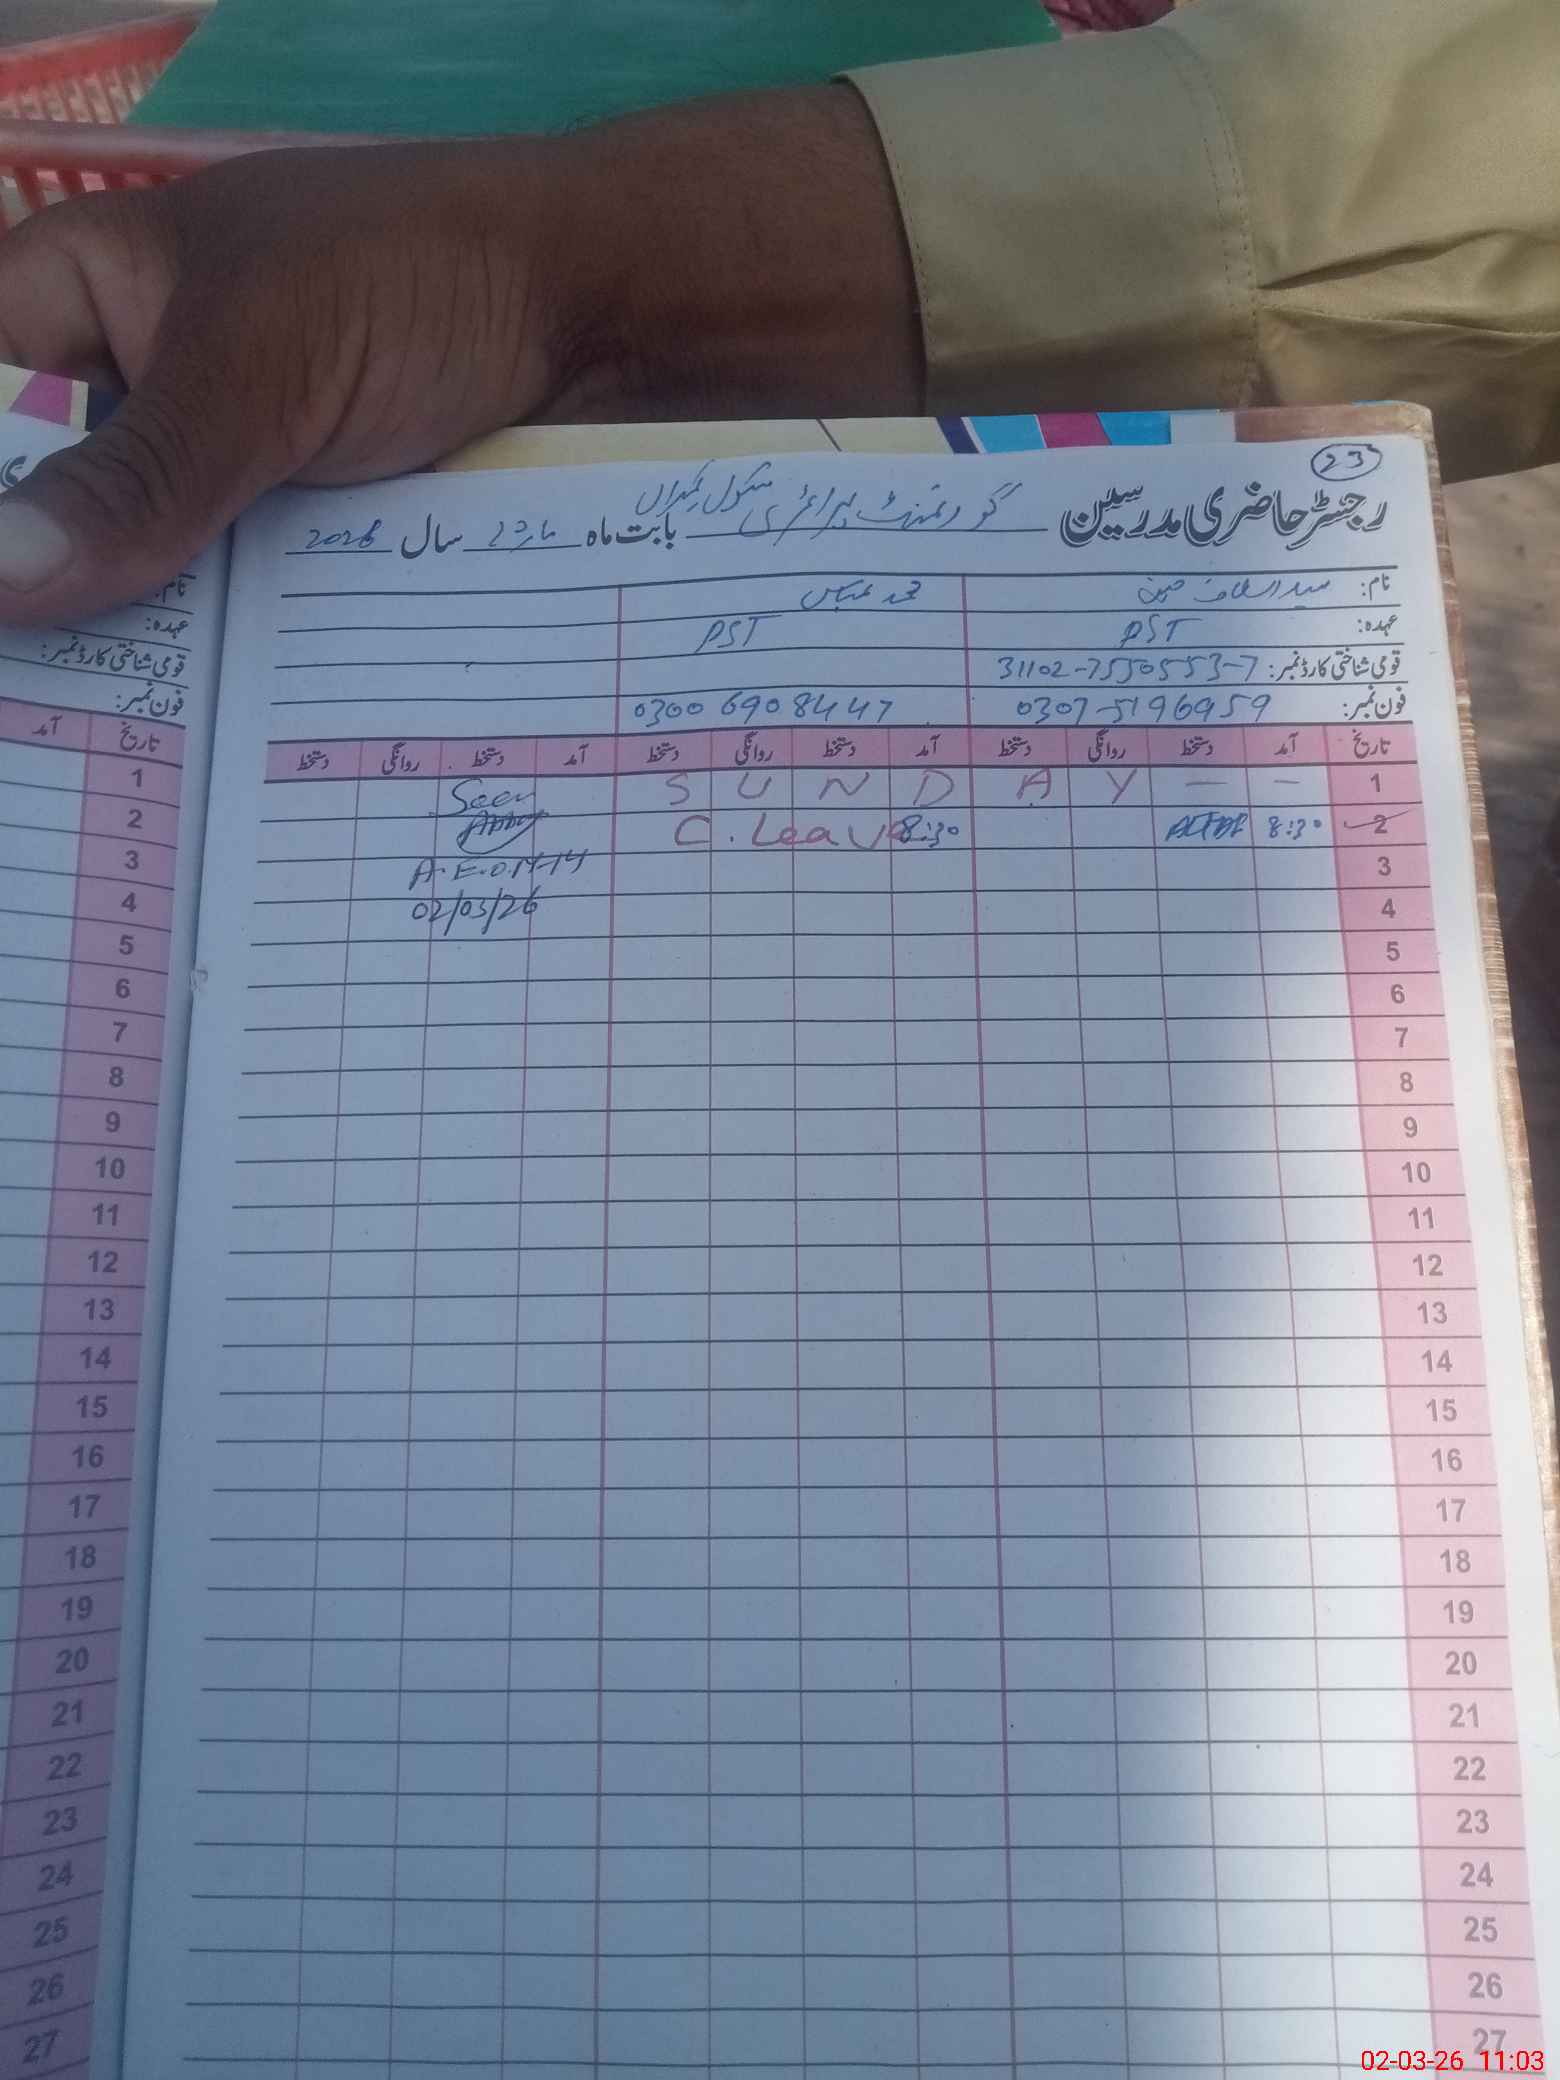 23
رجسٹر حاضری مدرسین گورنمنٹ پرائمری سکول بابت ماہ مارچ سال 2026
نام: سید الطاف حسین محمد عباس
عہدہ: PST PST
قومی شناختی کارڈ نمبر: 31102-7550553-7
فون نمبر: 0307-5196959 0300 6908447
تاریخ آمد دستخط روانگی دستخط آمد دستخط روانگی دستخط آمد دستخط روانگی دستخط
1 S U N D A Y — — Seen
2 8:30 C. Leave 8:30
3 A.E.O.M-14
4 02/03/26
5
6
7
8
9
10
11
12
13
14
15
16
17
18
19
20
21
22
23
24
25
26
27
نام:
عہدہ:
قومی شناختی کارڈ نمبر:
فون نمبر:
تاریخ آمد
1
2
3
4
5
6
7
8
9
10
11
12
13
14
15
16
17
18
19
20
21
22
23
24
25
26
27
02-03-26 11:03